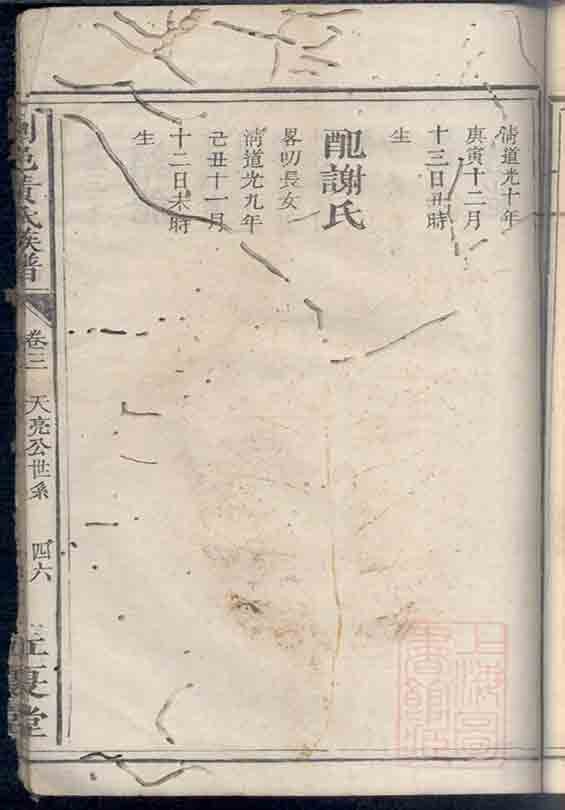 清道光十年
庚寅十二月
十三日丑時
生
配謝氏
畧叨長女
清道光九年
己丑十一月
十二日未時
生
瀏邑黃氏族譜
卷三
天亮公世系
四六
江夏堂
上海圖書館藏